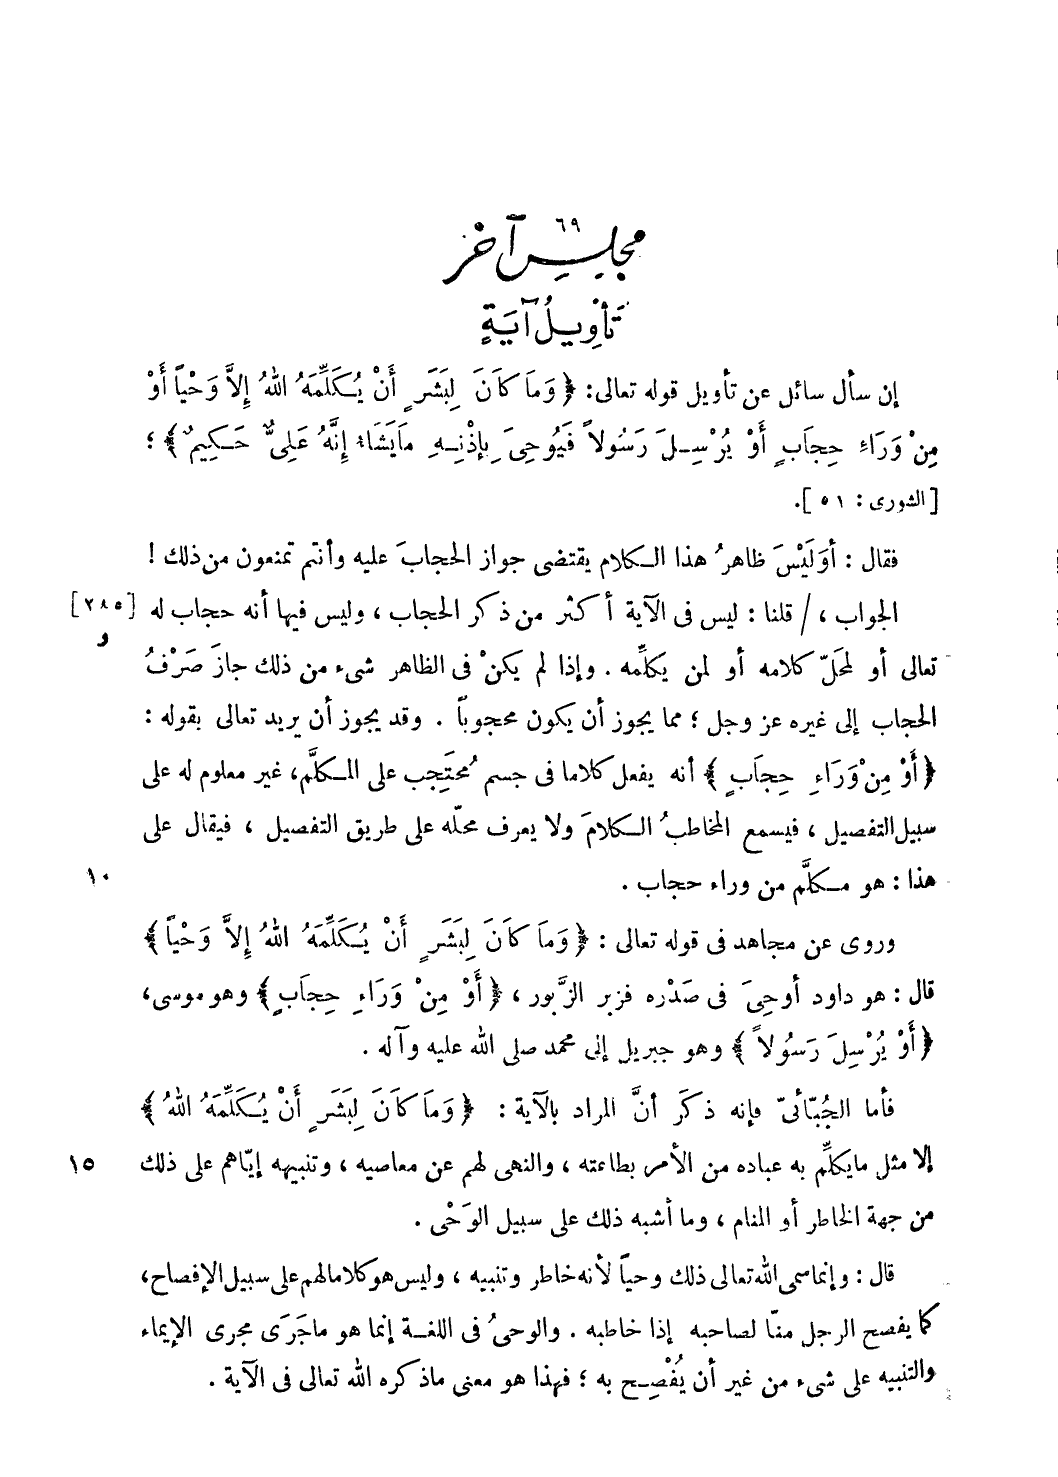 ٦٩
مجلس آخر
تأويل آية
إن سأل سائل عن تأويل قوله تعالى: ﴿ وَمَا كَانَ لِبَشَرٍ أَنْ يُكَلِّمَهُ اللهُ إِلاَّ وَحْيًا أَوْ
مِنْ وَرَاءِ حِجَابٍ أَوْ يُرْسِلَ رَسُولاً فَيُوحِيَ بِإِذْنِهِ مَا يَشَاءُ إِنَّهُ عَلِيٌّ حَكِيمٌ ﴾ ؛
[ الشورى : ٥١ ].
فقال : أوَلَيْسَ ظاهرُ هذا الكلام يقتضى جواز الحجابَ عليه وأنتم تمنعون من ذلك !
الجواب ، / قلنا : ليس فى الآية أكثر من ذكر الحجاب ، وليس فيها أنه حجاب له [٢٨٥]
و
تعالى أو لمحَلّ كلامه أو لمن يكلِّمه . وإذا لم يكنْ فى الظاهر شىء من ذلك جازَ صَرْفُ
الحجاب إلى غيره عز وجل ؛ مما يجوز أن يكون محجوباً . وقد يجوز أن يريد تعالى بقوله :
﴿ أَوْ مِنْ وَرَاءِ حِجَابٍ ﴾ أنه يفعل كلاما فى جسم مُحتَجِب على المكلَّم، غير معلوم له على
سبيل التفصيل ، فيسمع المخاطبُ الكلامَ ولا يعرف محلّه على طريق التفصيل ، فيقال على
هذا : هو مكلَّم من وراء حجاب . ١٠
وروى عن مجاهد فى قوله تعالى : ﴿ وَمَا كَانَ لِبَشَرٍ أَنْ يُكَلِّمَهُ اللهُ إِلاَّ وَحْيًا ﴾
قال : هو داود أوحِىَ فى صَدْره فزبر الزَّبور ، ﴿ أَوْ مِنْ وَرَاءِ حِجَابٍ ﴾ وهو موسى،
﴿ أَوْ يُرْسِلَ رَسُولاً ﴾ وهو جبريل إلى محمد صلى الله عليه وآله .
فأما الجُبّائىّ فإنه ذكَر أنَّ المراد بالآية : ﴿ وَمَا كَانَ لِبَشَرٍ أَنْ يُكَلِّمَهُ اللهُ ﴾
إلا مثل ما يكلِّم به عباده من الأمر بطاعته ، والنهى لهم عن معاصيه ، وتنبيهه إيّاهم على ذلك ١٥
من جهة الخاطر أو المنام ، وما أشبه ذلك على سبيل الوَحْى .
قال : وإنما سمى الله تعالى ذلك وحياً لأنه خاطر وتنبيه ، وليس هو كلاما لهم على سبيل الإفصاح،
كما يفصح الرجل منّا لصاحبه إذا خاطبه . والوحىُ فى اللغة إنما هو ماجَرَى مجرى الإيماء
والتنبيه على شىء من غير أن يُفْصِح به ؛ فهذا هو معنى ماذكره الله تعالى فى الآية .